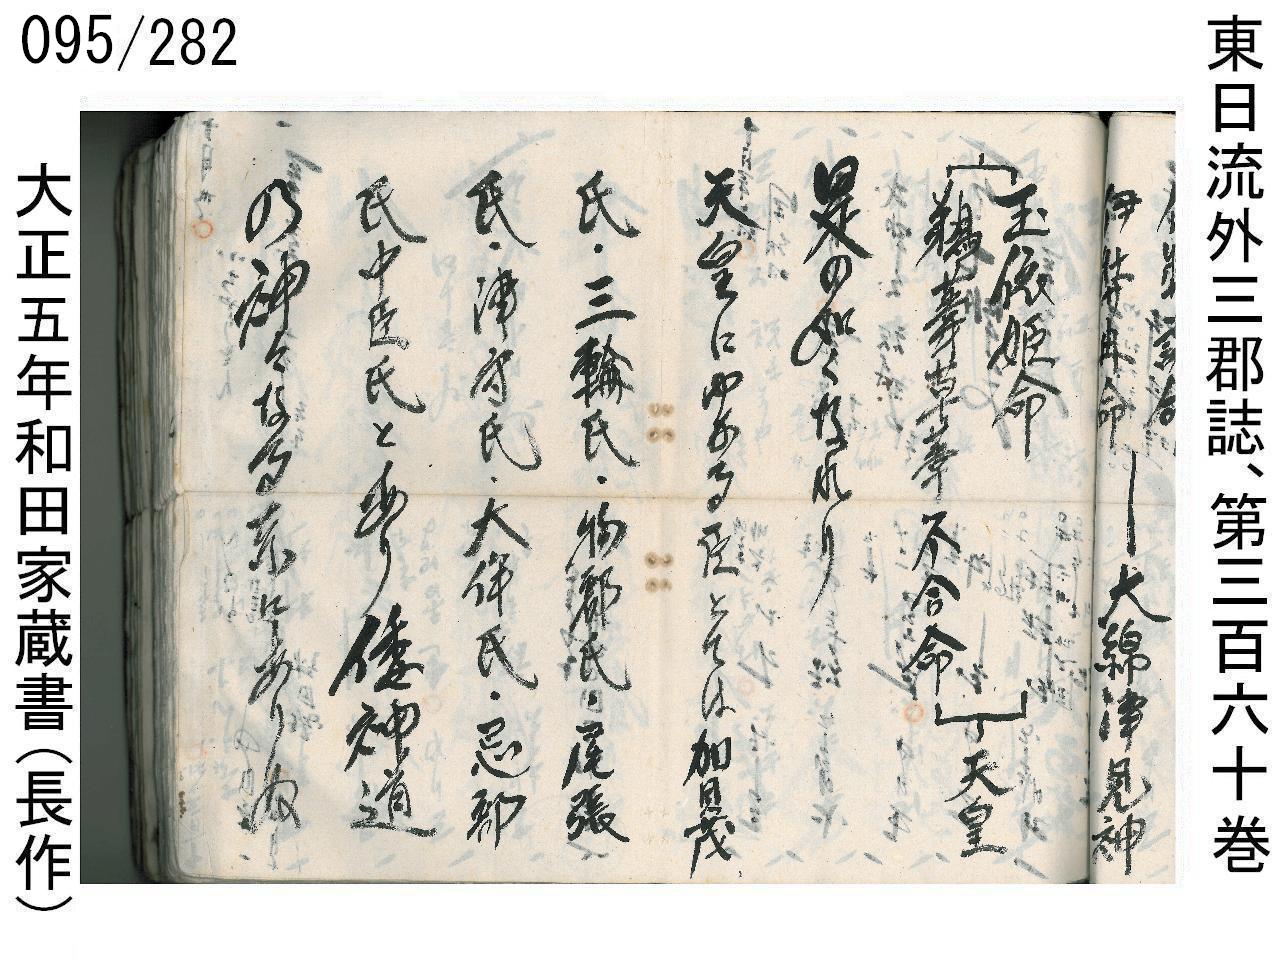 095/282
東日流外三郡誌、第三百六十巻
伊弉冉命―大綿津見神
玉依姫命
鵜葺草葺不合命
天皇
是の如くなれり
天皇にゆかる臣とては加茂
氏・三輪氏・物部氏・尾張
氏・津守氏・大伴氏・忌部
氏中臣氏とあり倭神道
乃神々なる
大正五年和田家蔵書(長作)